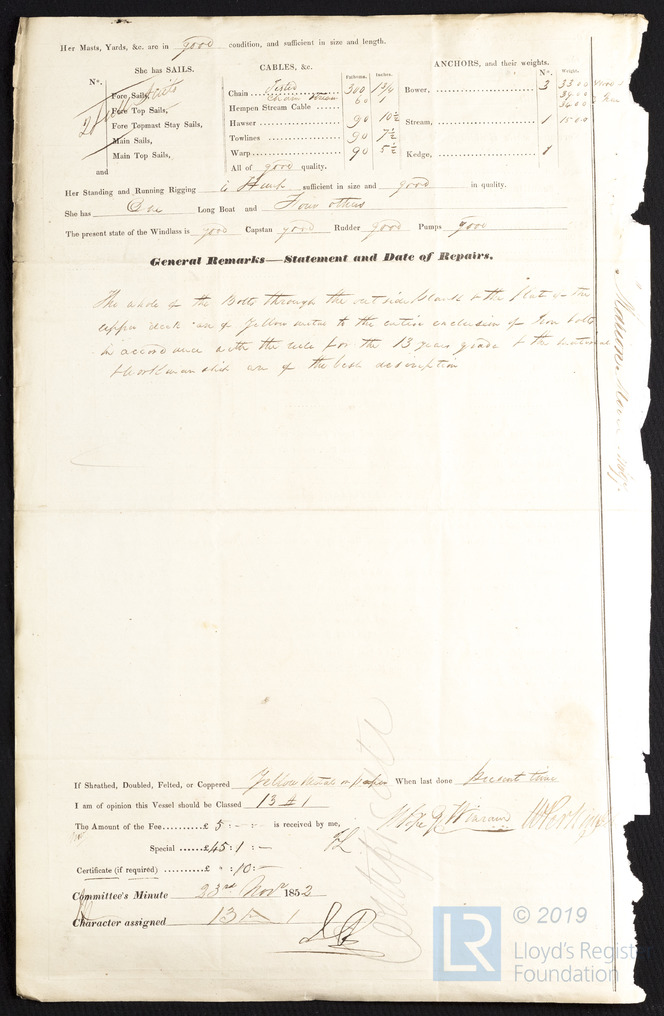 Her Masts, Yards, &c. are in good condition, and sufficient in size and length.
She has SAILS.
CABLES, &c.
ANCHORS, and their weights.
N°.
Fathoms. Inches.
N°. Weight.
2 Full Suits
Fore Sails,
Fore Top Sails,
Fore Topmast Stay Sails,
Main Sails,
Main Top Sails,
and
Chain Tested 300 1 3/4
Chain Stream 60 1
Hempen Stream Cable
Hawser 90 10 1/2
Towlines 90 7 1/2
Warp 90 5 1/2
All of good quality.
Bower, 3
Stream, 1
Kedge, 1
Her Standing and Running Rigging is Hemp sufficient in size and good in quality.
She has One Long Boat and Four others
The present state of the Windlass is good Capstan good Rudder good Pumps good
General Remarks—Statement and Date of Repairs.
The whole of the Bolts through the outside Plank & the flat of the
upper deck are of Yellow metal to the entire exclusion of Iron bolts
in accordance with the rule for the 13 years grade & the material
& workmanship are of the best description
If Sheathed, Doubled, Felted, or Coppered Yellow Metal on paper When last done Present time
I am of opinion this Vessel should be Classed 13 A 1
The Amount of the Fee..........£ 5 : - : - is received by me,
Special ......£45 : 1 : -
Certificate (if required) ........£ " : 10 : -
Certificate
Committee's Minute 23rd Novr 1852
Character assigned 13 A 1
LR
© 2019
Lloyd's Register
Foundation